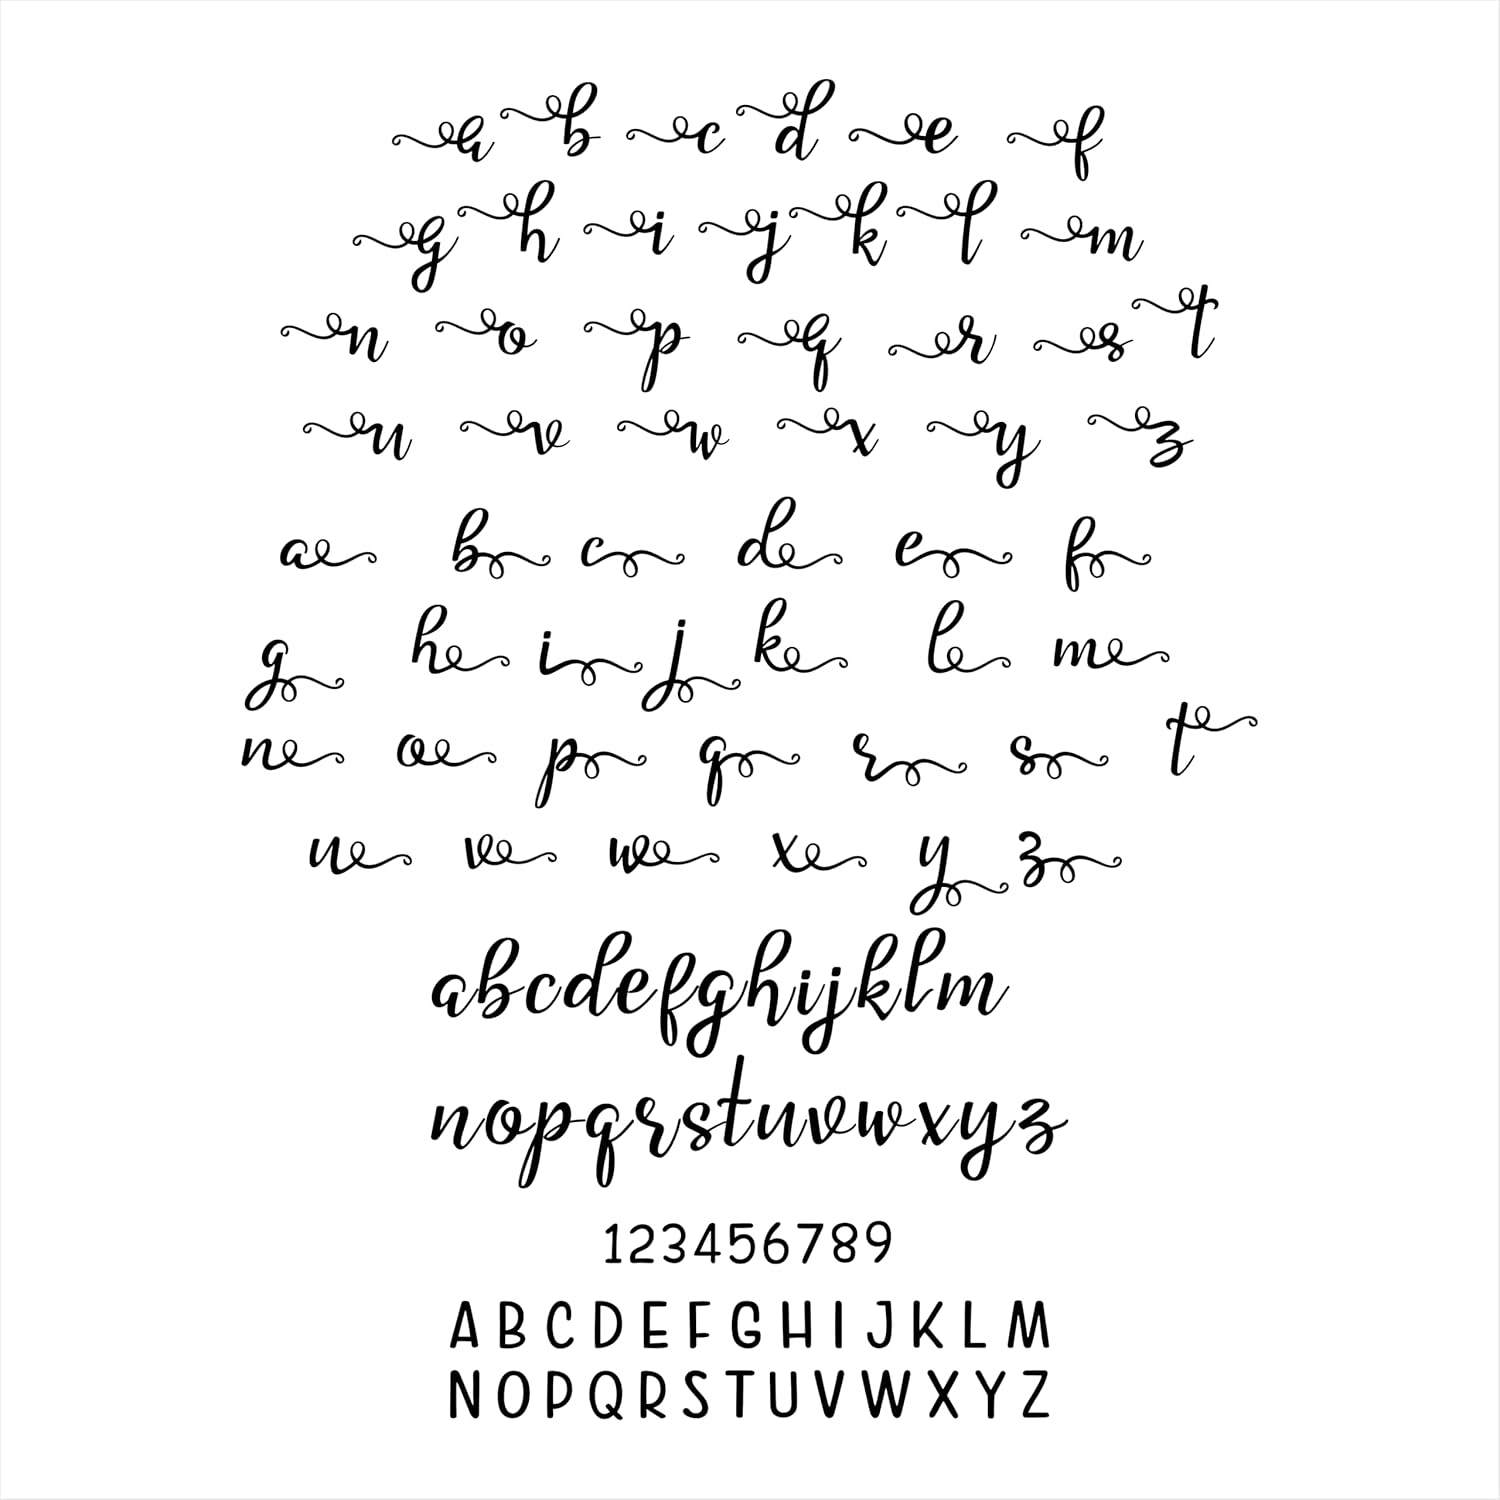 a b c d e f
g h i j k l m
n o p q r s t
u v w x y z
a b c d e f
g h i j k l m
n o p q r s t
u v w x y z
abcdefghijklm
nopqrstuvwxyz
123456789
A B C D E F G H I J K L M
N O P Q R S T U V W X Y Z